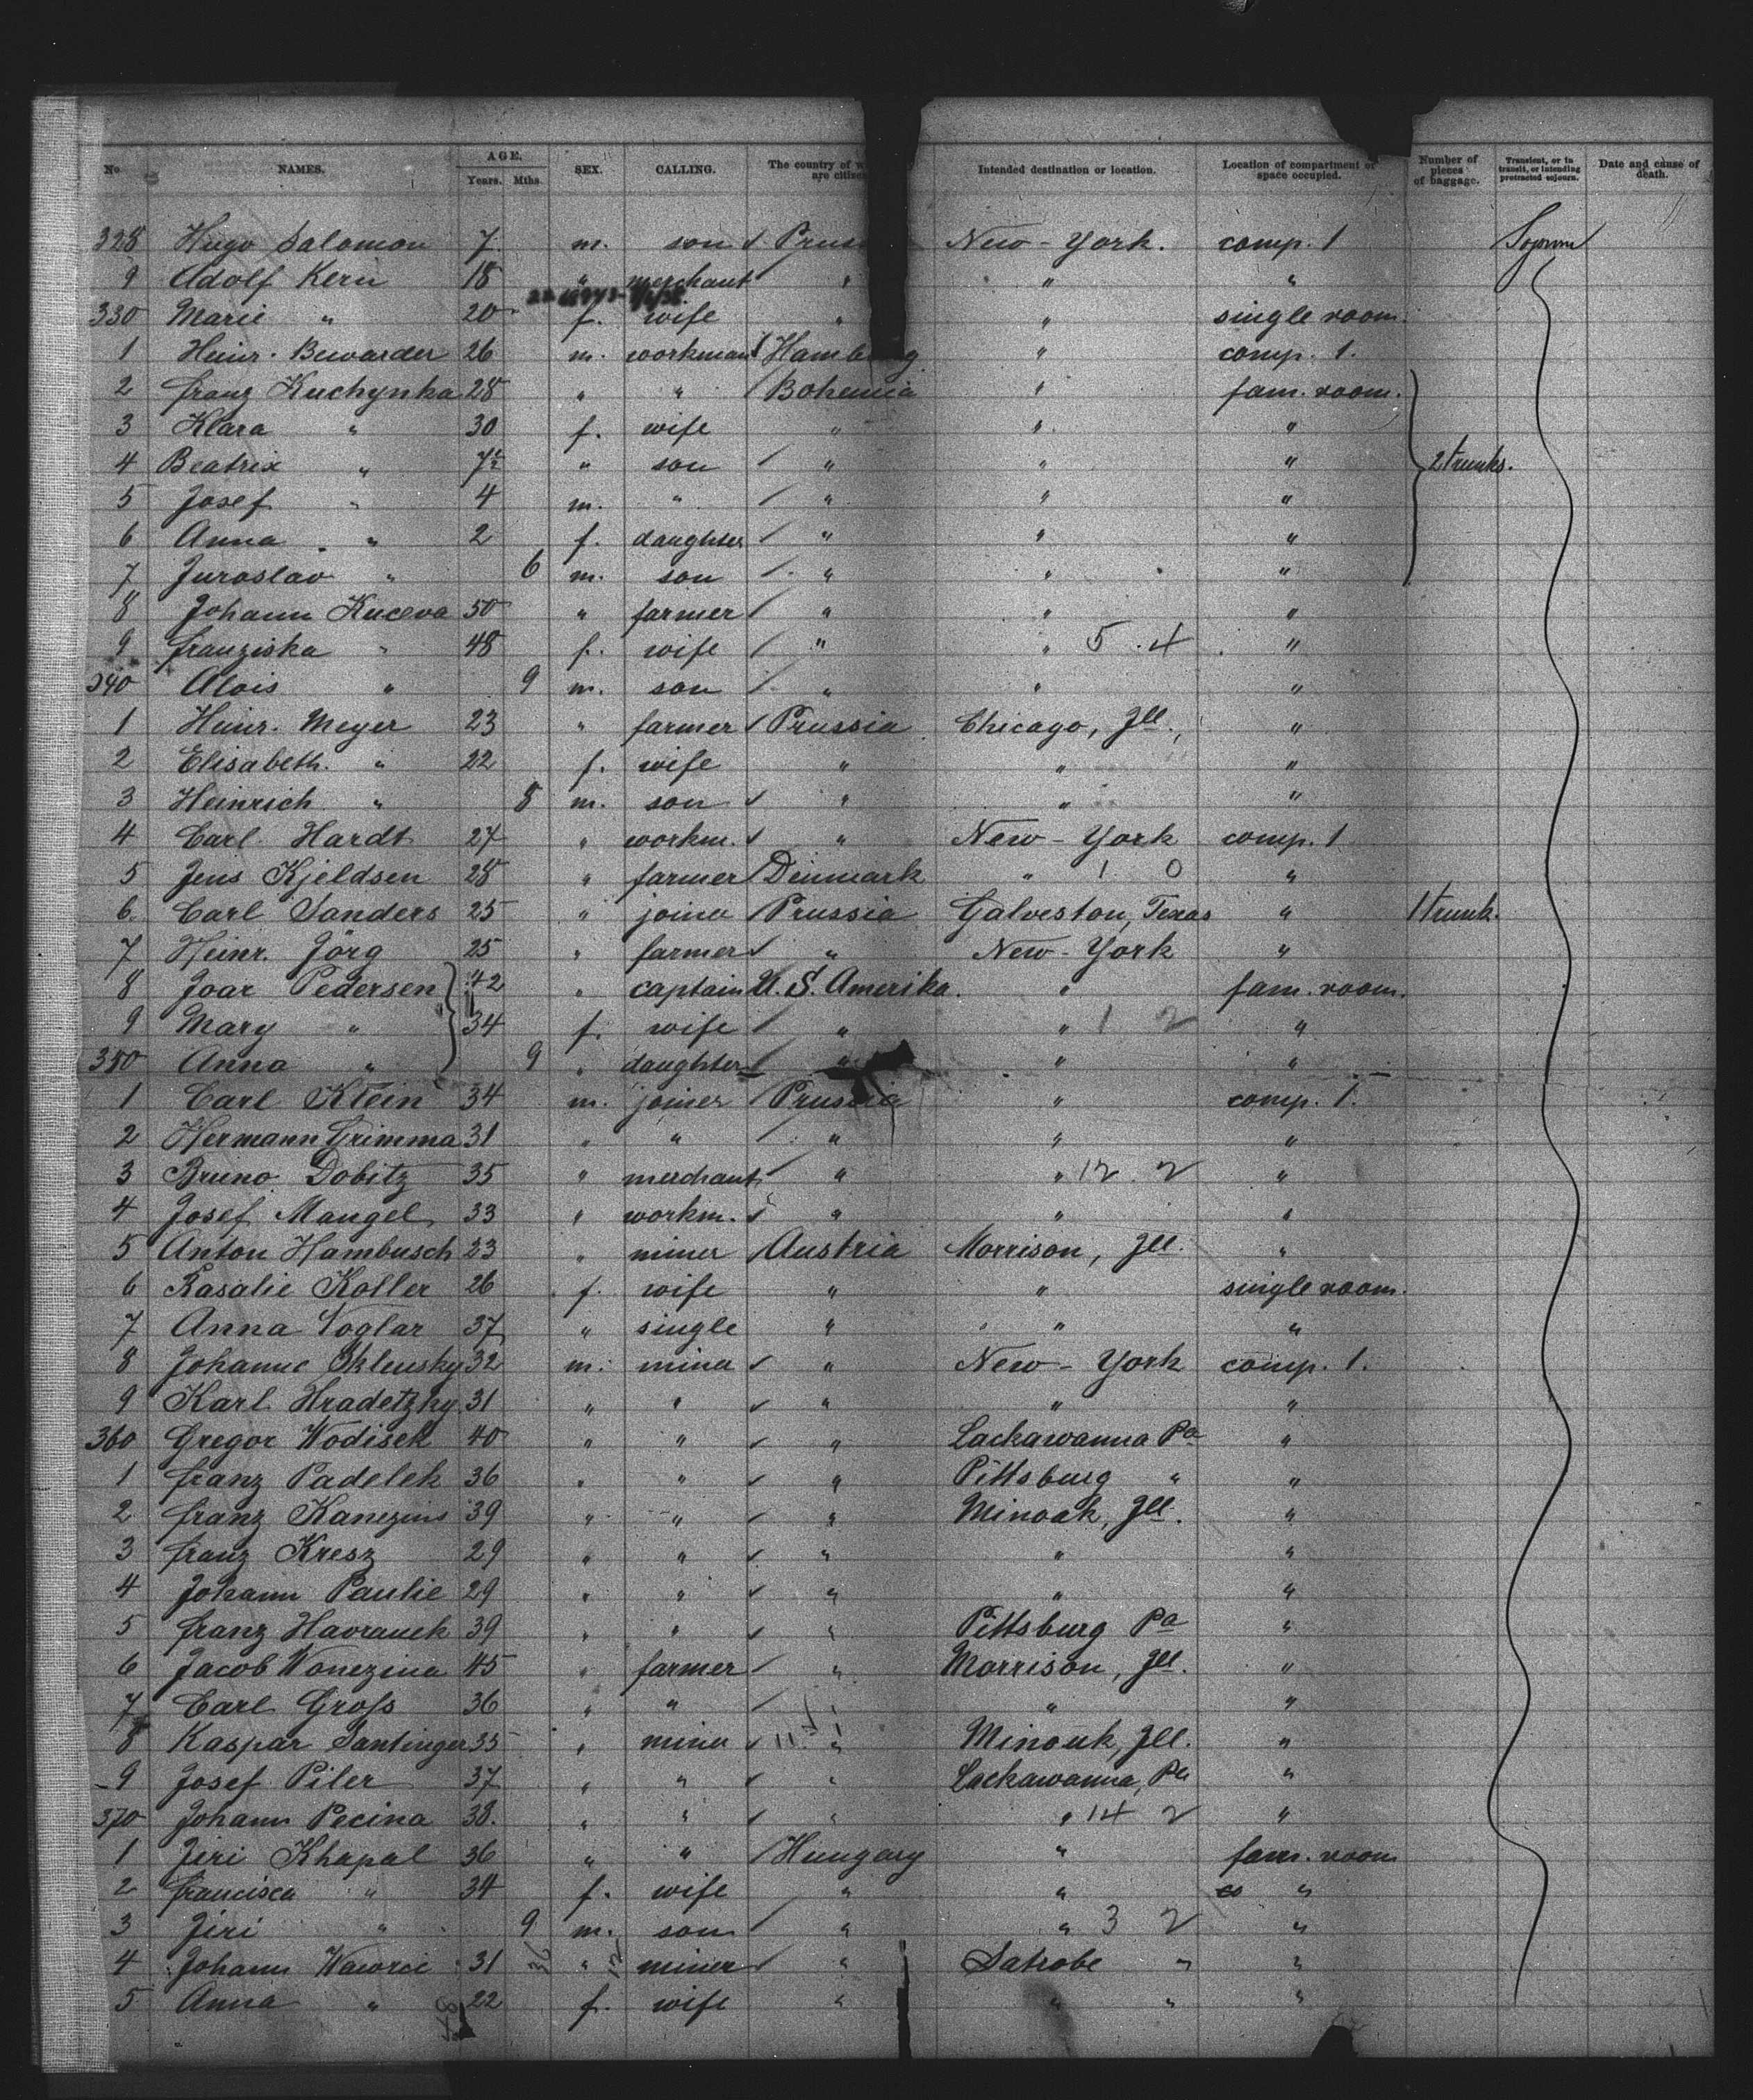 No NAMES. AGE. Years. Mths. SEX. CALLING. The country of w are citizen Intended destination or location. Location of compartment or space occupied. Number of pieces of baggage. Transient, or in transit, or intending protracted sojourn. Date and cause of death.
328 Hugo Salomon 7 m. son Prus New-York. comp. 1
9 Adolf Kern 18 " merchant " " "
330 Marie " 20 f. wife " " single room.
1 Heinr. Bewarder 26 m. workman Hamburg " comp. 1.
2 Franz Kuchynka 28 " " Bohemia " fam. room.
3 Klara " 30 f. wife " " "
4 Beatrix " 7½ " son " " " 2 trunks.
5 Josef " 4 m. " " " "
6 Anna " 2 f. daughter " " "
7 Juroslav " 6 m. son " " "
8 Johann Kuceva 50 " farmer " " "
9 Franziska " 48 f. wife " " 5 4 "
340 Alois " 9 m. son " " "
1 Heinr. Meyer 23 " farmer Prussia Chicago, Ill. "
2 Elisabeth " 22 f. wife " " "
3 Heinrich " 8 m. son " " "
4 Carl Hardt 27 " workm. " New-York comp. 1
5 Jens Kjeldsen 28 " farmer Denmark " 1 0 "
6 Carl Sanders 25 " joiner Prussia Galveston, Texas " 1 trunk.
7 Heinr. Jörg 25 " farmer " New-York "
8 Joar Pedersen 42 " captain U. S. Amerika. " fam. room.
9 Mary " 34 f. wife " " 1 2 "
350 Anna " 9 " daughter " " "
1 Carl Klein 34 m. joiner Prussia " comp. 1.
2 Hermann Grimma 31 " " " " "
3 Bruno Dobitz 35 " merchant " " 12 2 "
4 Josef Mangel 33 " workm. " " "
5 Anton Hambusch 23 " miner Austria Morrison, Ill. "
6 Rosalie Koller 26 f. wife " " single room.
7 Anna Voglar 37 " single " " "
8 32 m. miner " New-York comp. 1.
9 Karl Hradetzky 31 " " " " "
360 Gregor Wodisek 40 " " " Lackawanna Pa "
1 Franz Padelek 36 " " " Pittsburg " "
2 Franz 39 " " " Minoak, Ill. "
3 Franz Kresz 29 " " " " "
4 Johann Paulie 29 " " " " "
5 Franz Havranek 39 " " " Pittsburg Pa "
6 Jacob Wonezina 45 " farmer " Morrison, Ill. "
7 Carl Groß 36 " " " " "
8 Kaspar Santinger 35 " miner 11 1 " Minouk, Ill. "
9 Josef Piler 37 " " " Lackawanna, Pa "
370 Johann Pecina 38. " " " " 14 2 "
1 Jiri Khapal 36 " " Hungary " fam. room
2 Francisca " 34 f. wife " " "
3 Jiri " 9 m. son " " 3 2 "
4 Johann 31 " miner " Latrobe " "
5 Anna " 22 f. wife " " " "